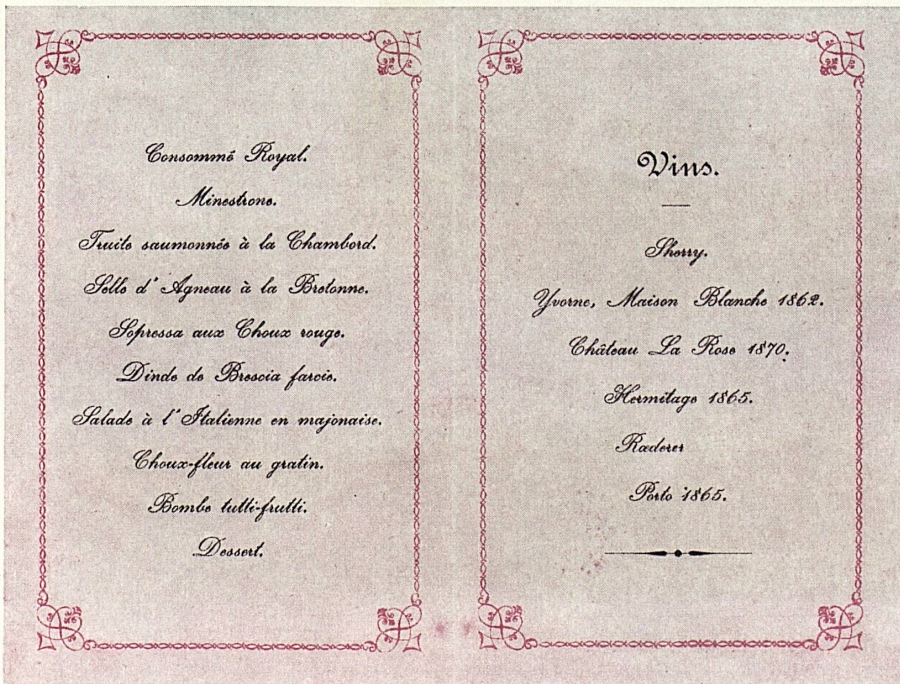 Consommé Royal.
Minestrone.
Truite saumonnée à la Chambord.
Selle d'Agneau à la Bretonne.
Sopressa aux Choux rouge.
Dinde de Brescia farcie.
Salade à l'Italienne en majonaise.
Choux-fleur au gratin.
Bombe tutti-frutti.
Dessert.
Vins.
Sherry.
Yvorne, Maison Blanche 1862.
Château La Rose 1870.
Hermitage 1865.
Rœderer
Porto 1865.